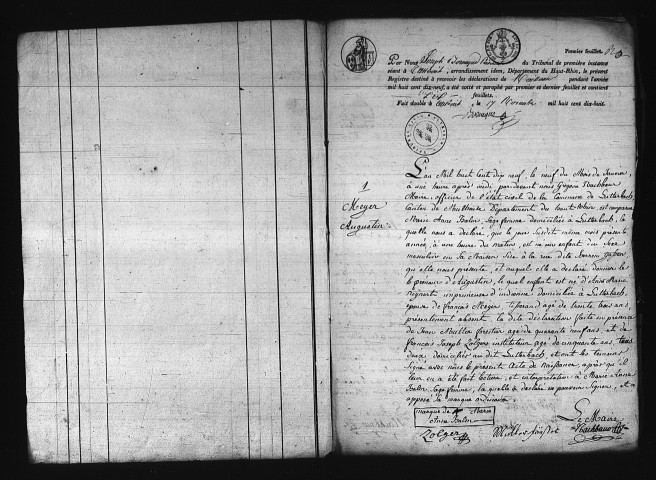 Premier feuillet.
Par Nous Joseph du Tribunal de première instance
séant à arrondissement idem, Département du Haut-Rhin, le présent
Registre destiné à recevoir les déclarations de Naissance pendant l'année
mil huit cent dix-neuf, a été coté et paraphé par premier et dernier feuillet et contient
feuillets.
Fait double à le 17 Novembre mil huit cent dix-huit.
1
Meyer
Augustin
L'an Mil huit Cent dix neuf, le neuf du Mois de Janvier,
à une heure après midi par devant nous
Maire, officier de l'état civil de la Commune de Lutterbach,
Canton de Mulhouse Département du haut Rhin, est
Marie Anne Sage femme domiciliée à Lutterbach, la
quelle nous a déclaré, que le jour Susdit même mois présente
année, à une heure du matin, est né un enfant du Sexe
masculin en Sa Maison Sise à la rue dite
qu'elle nous présente, et auquel elle a déclaré donner le
prénom d'Augustin, le quel enfant est né d'Anne Marie
domiciliée à Lutterbach,
épouse de François Meyer tisserand agé de trente trois ans
présentement absent, la dite déclaration faite en présence
de Jean Muller forestier agé de quarante neuf ans, et de
François Joseph Zolger instituteur agé de cinquante ans, tous
deux domiciliés au dit Lutterbach, et ont les témoins
Signé avec nous le présent Acte de Naissance, après qu'il
leur en a été fait lecture, et interprétation à Marie Anne
Sage femme, la quelle a déclaré ne pouvoir Signer, et a
apposé Sa marque ordinaire.
marque de Marie
Anne
Le Maire
Zolger